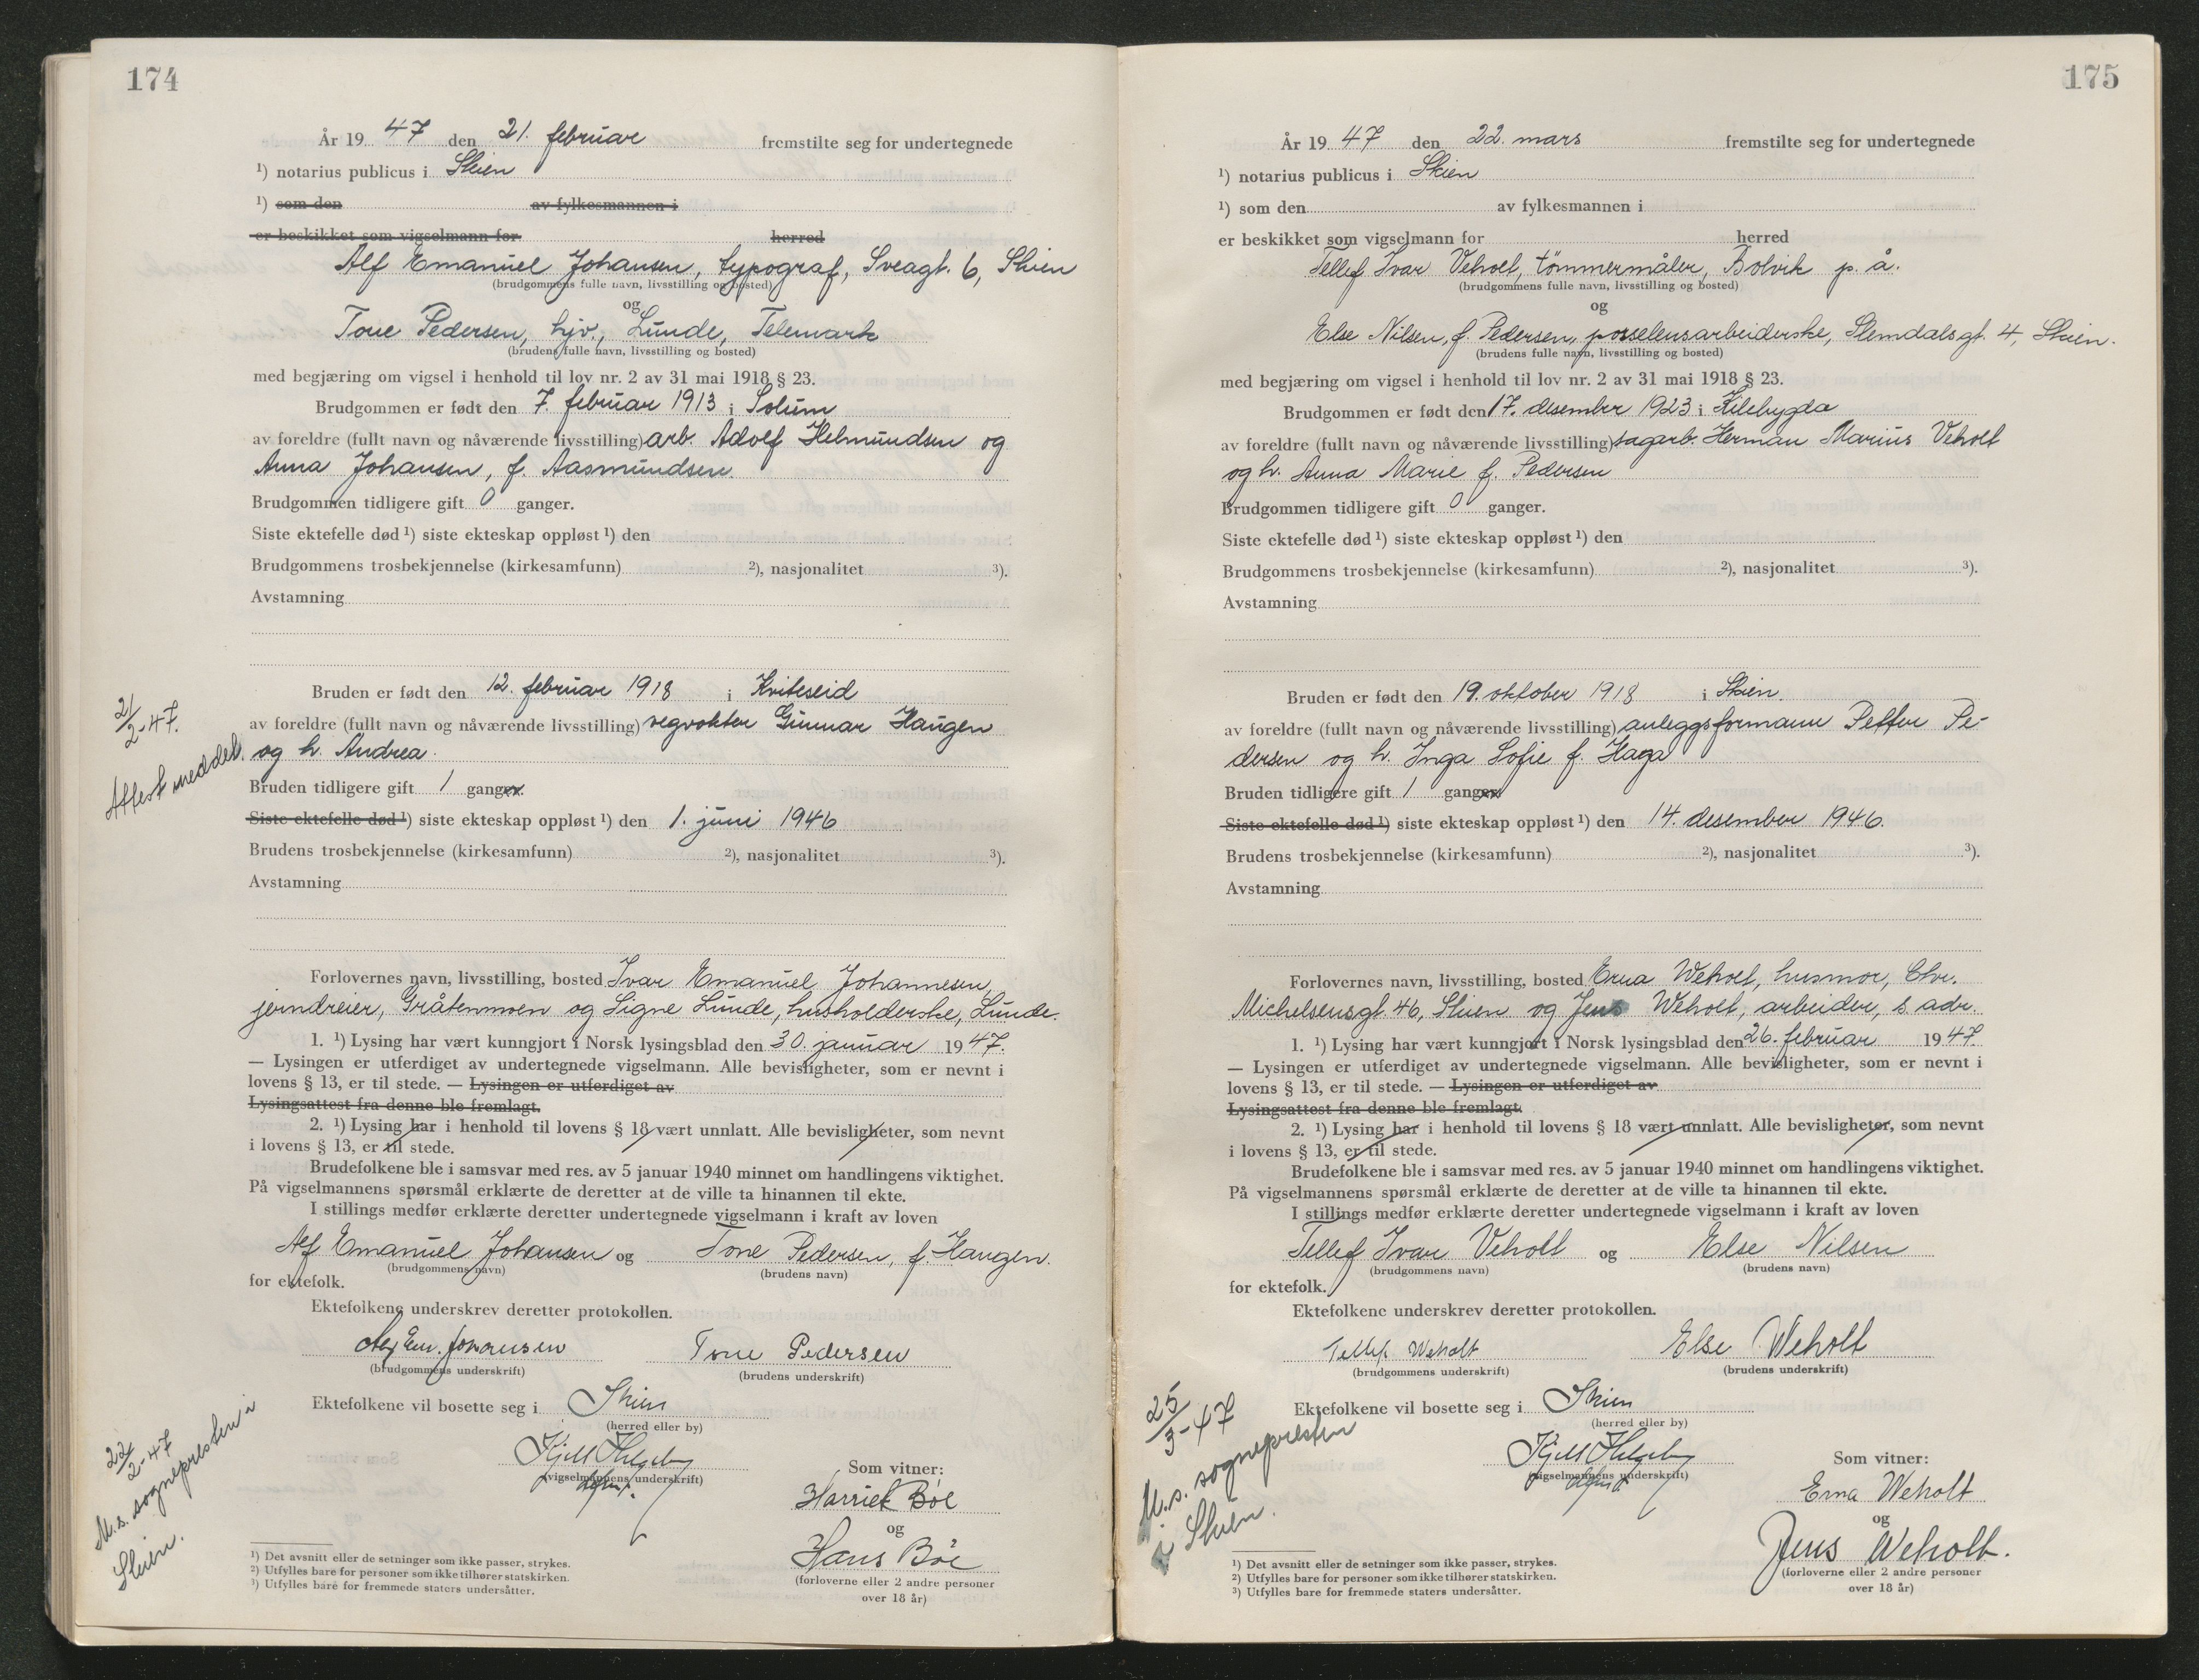 174
År 19 47 den 21. februar fremstilte seg for undertegnede
¹) notarius publicus i Skien
¹) som den av fylkesmannen i
er beskikket som vigselmann for herred
Alf Emanuel Johansen, typograf, Sveagt. 6, Skien
(brudgommens fulle navn, livsstilling og bosted)
og
Tone Pedersen, hjv., Lunde, Telemark
(brudens fulle navn, livsstilling og bosted)
med begjæring om vigsel i henhold til lov nr. 2 av 31 mai 1918 § 23.
Brudgommen er født den 7. februar 1913 i Solum
av foreldre (fullt navn og nåværende livsstilling) arb. Adolf Helmundsen og
Anna Johansen, f. Aasmundsen.
Brudgommen tidligere gift 0 ganger.
Siste ektefelle død ¹) siste ekteskap oppløst ¹) den
Brudgommens trosbekjennelse (kirkesamfunn) ²), nasjonalitet ³).
Avstamning
Bruden er født den 12. februar 1918 i Kviteseid
av foreldre (fullt navn og nåværende livsstilling) vegvokter Gunnar Haugen
og h. Andrea.
Bruden tidligere gift 1 ganger.
Siste ektefelle død ¹) siste ekteskap oppløst ¹) den 1. juni 1946
Brudens trosbekjennelse (kirkesamfunn) ²), nasjonalitet ³).
Avstamning
21/2-47.
Attest meddelt.
Forlovernes navn, livsstilling, bosted Ivar Emanuel Johannesen,
jerndreier, Gråtenmoen og Signe Lunde, husholderske, Lunde.
1. ¹) Lysing har vært kunngjort i Norsk lysingsblad den 30. januar 19 47.
— Lysingen er utferdiget av undertegnede vigselmann. Alle bevisligheter, som er nevnt i
lovens § 13, er til stede. — Lysingen er utferdiget av
Lysingsattest fra denne ble fremlagt.
2. ¹) Lysing har i henhold til lovens § 18 vært unnlatt. Alle bevisligheter, som nevnt
i lovens § 13, er til stede.
Brudefolkene ble i samsvar med res. av 5 januar 1940 minnet om handlingens viktighet.
På vigselmannens spørsmål erklærte de deretter at de ville ta hinannen til ekte.
I stillings medfør erklærte deretter undertegnede vigselmann i kraft av loven
Alf Emanuel Johansen og Tone Pedersen, f. Haugen.
(brudgommens navn) (brudens navn)
for ektefolk.
Ektefolkene underskrev deretter protokollen.
Alf Em. Johansen Tone Pedersen
(brudgommens underskrift) (brudens underskrift)
Ektefolkene vil bosette seg i Skien
(herred eller by)
Kjell Helgeby
(vigselmannens underskrift)
Som vitner:
Harriet Bøe
og
Hans Böe
(forloverne eller 2 andre personer
over 18 år)
22/2-47
M.s. sognepresten i
Skien.
¹) Det avsnitt eller de setninger som ikke passer, strykes.
²) Utfylles bare for personer som ikke tilhører statskirken.
³) Utfylles bare for fremmede staters undersåtter.
175
År 19 47 den 22. mars fremstilte seg for undertegnede
¹) notarius publicus i Skien
¹) som den av fylkesmannen i
er beskikket som vigselmann for herred
Tellef Ivar Veholt, tömmermåler, Bolvik p. å.
(brudgommens fulle navn, livsstilling og bosted)
og
Else Nilsen, f. Pedersen, posselensarbeiderske, Slemdalsgt. 4, Skien.
(brudens fulle navn, livsstilling og bosted)
med begjæring om vigsel i henhold til lov nr. 2 av 31 mai 1918 § 23.
Brudgommen er født den 17. desember 1923 i Kilebygda
av foreldre (fullt navn og nåværende livsstilling) sagarb. Herman Marius Veholt
og h. Anna Marie f. Pedersen
Brudgommen tidligere gift 0 ganger.
Siste ektefelle død ¹) siste ekteskap oppløst ¹) den
Brudgommens trosbekjennelse (kirkesamfunn) ²), nasjonalitet ³).
Avstamning
Bruden er født den 19. oktober 1918 i Skien.
av foreldre (fullt navn og nåværende livsstilling) anleggsformann Petter Pe-
dersen og h. Inga Sofie f. Haga
Bruden tidligere gift 1 ganger
Siste ektefelle død ¹) siste ekteskap oppløst ¹) den 14. desember 1946.
Brudens trosbekjennelse (kirkesamfunn) ²), nasjonalitet ³).
Avstamning
Forlovernes navn, livsstilling, bosted Erna Weholt, husmor, Chr.
Michelsensgt. 46, Skien og Jens Weholt, arbeider, s. adr.
1. ¹) Lysing har vært kunngjort i Norsk lysingsblad den 26. februar 19 47
— Lysingen er utferdiget av undertegnede vigselmann. Alle bevisligheter, som er nevnt i
lovens § 13, er til stede. — Lysingen er utferdiget av
Lysingsattest fra denne ble fremlagt.
2. ¹) Lysing har i henhold til lovens § 18 vært unnlatt. Alle bevisligheter, som nevnt
i lovens § 13, er til stede.
Brudefolkene ble i samsvar med res. av 5 januar 1940 minnet om handlingens viktighet.
På vigselmannens spørsmål erklærte de deretter at de ville ta hinannen til ekte.
I stillings medfør erklærte deretter undertegnede vigselmann i kraft av loven
Tellef Ivar Veholt og Else Nilsen
(brudgommens navn) (brudens navn)
for ektefolk.
Ektefolkene underskrev deretter protokollen.
Tellef Weholt Else Weholt
(brudgommens underskrift) (brudens underskrift)
Ektefolkene vil bosette seg i Skien
(herred eller by)
Kjell Helgeby
(vigselmannens underskrift)
Som vitner:
Erna Weholt
og
Jens Weholt.
(forloverne eller 2 andre personer
over 18 år)
25/3-47
M.s. sognepresten
i Skien.
¹) Det avsnitt eller de setninger som ikke passer, strykes.
²) Utfylles bare for personer som ikke tilhører statskirken.
³) Utfylles bare for fremmede staters undersåtter.